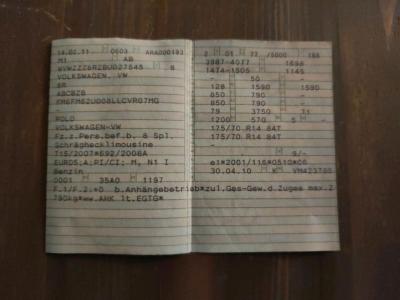 14.02.11 0603 ARA000193
M1 AB
WVWZZZ6RZBU027545 8
VOLKSWAGEN, VW
6R
ABCBZB
FM5FM52U008LLCVR07MG
-
POLO
VOLKSWAGEN-VW
Fz.z.Pers.bef.b. 8 Spl.
Schräghecklimousine
715/2007*692/2008A
EURO5;A;PI/CI; M, N1 I
Benzin
0001 35A0 1197
F.1/F.2:+0 b.Anhängebetrieb*zul.Ges-Gew.d.Zuges max.2
790kg*ww.AHK lt.EGTG*
2 01 77 /5000 165
3987-4077 1698
1474-1505 1145
- 50 -
128 1590 1590
850 790 -
850 790 -
79 3750 71
1200 570 5 -
175/70 R14 84T
175/70 R14 84T
- 9/-
e1*2001/116*0510*06
30.04.10 K